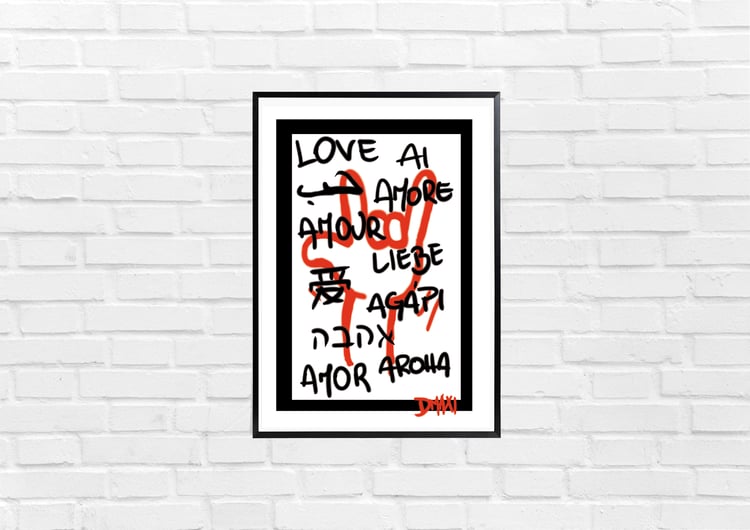 LOVE AI
حب AMORE
AMOUR
LIEBE
爱
AGÁPI
אהבה
AMOR AROHA